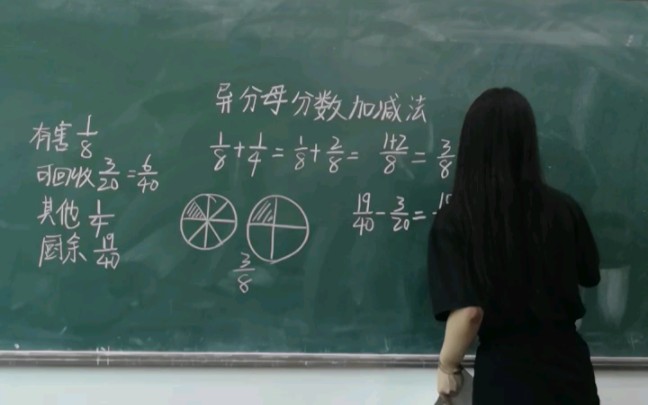 异分母分数加减法
有害 1/8
可回收 3/20 = 6/40
其他 1/4
厨余 19/40
1/8 + 1/4 = 1/8 + 2/8 = 1+2/8 = 3/8
3/8
19/40 - 3/20 =